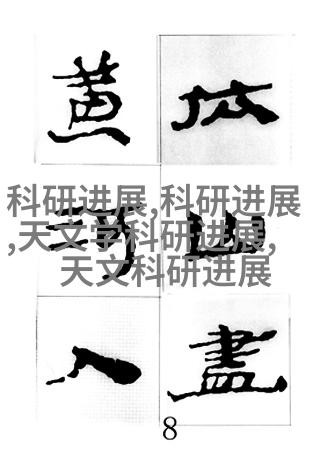 依山盡
黃河入
科研进展,科研进展
,天文学科研进展,
天文科研进展
8